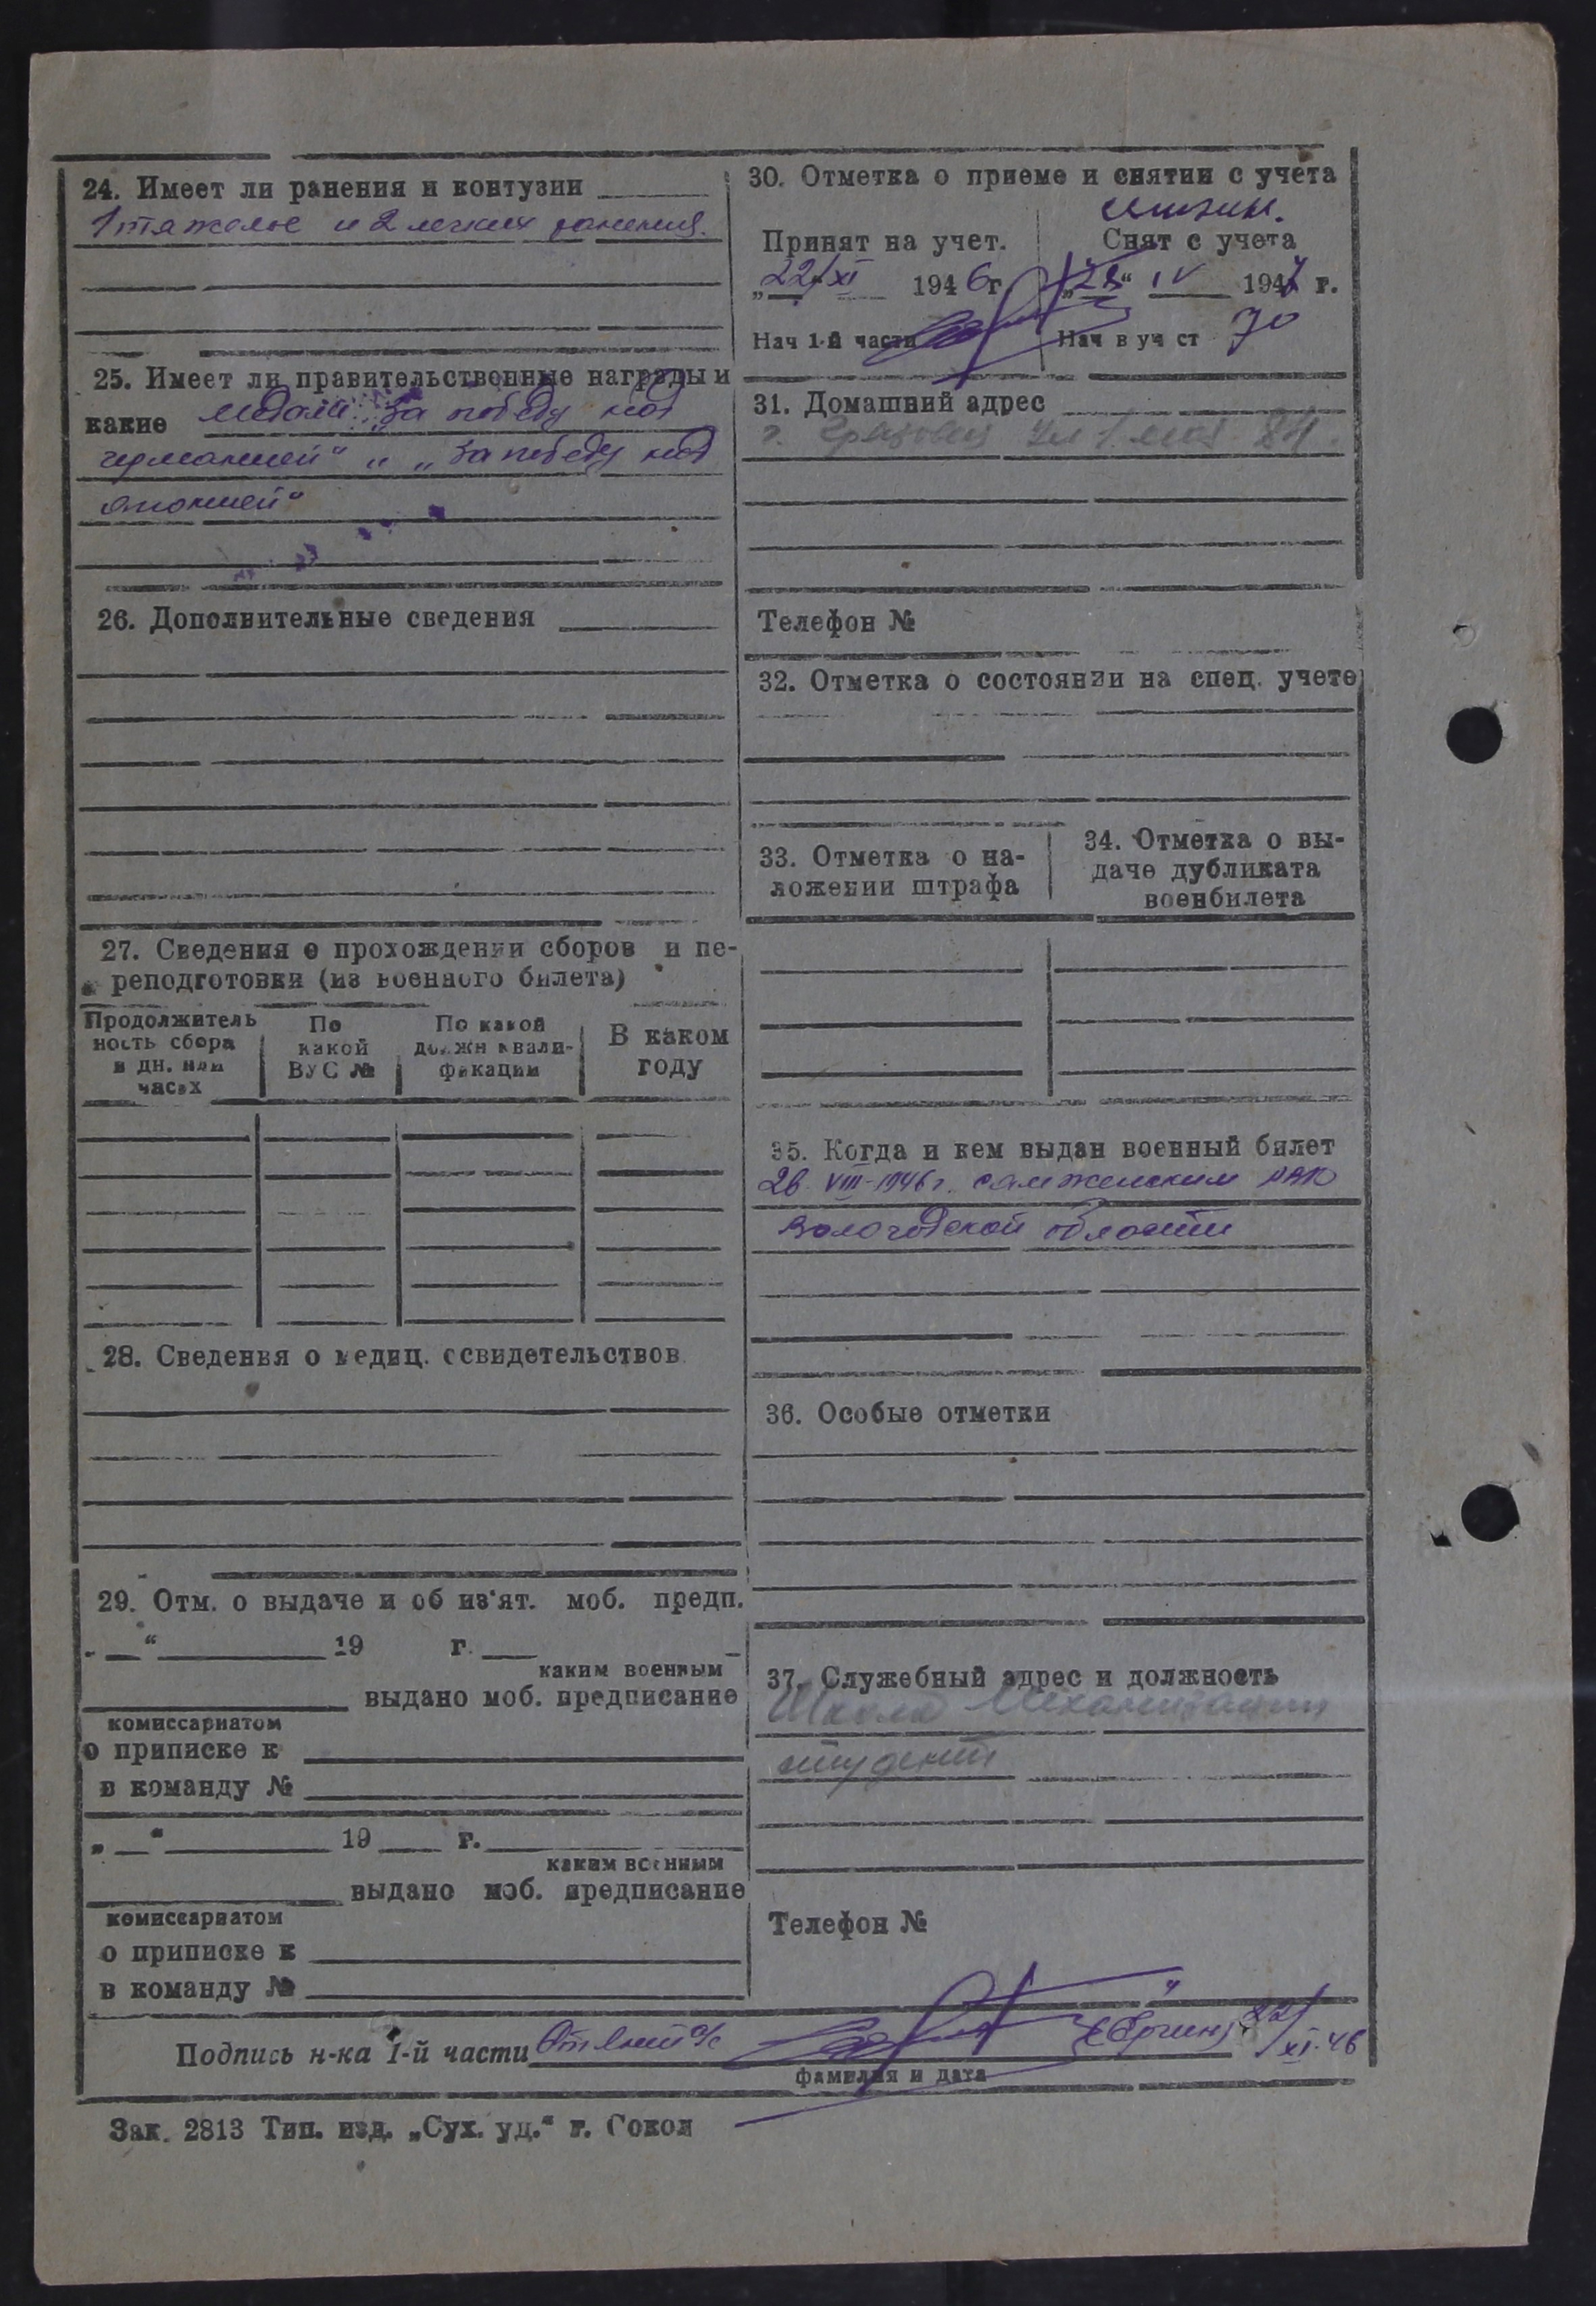 24. Имеет ли ранения и контузии
1 тяжелое и 2 легких ранения.
25. Имеет ли правительственные награды и
какие медали „За победу над
германией“ и „За победу над
японией“
26. Дополнительные сведения
27. Сведения о прохождении сборов и пе-
реподготовки (из военного билета)
Продолжитель
ность сбора
в дн. или
часах
По
какой
ВУС №
По какой
должн квали-
фикации
В каком
году
28. Сведения о медиц. освидетельствов.
29. Отм. о выдаче и об из'ят. моб. предп.
„ “ 19 г.
каким военным
выдано моб. предписание
комиссариатом
о приписке к
в команду №
„ “ 19 г.
каким военным
выдано моб. предписание
комиссариатом
о приписке к
в команду №
30. Отметка о приеме и снятии с учета
Принят на учет.
22/XI 1946г
Нач 1-й части
Снят с учета
„28“ IV 1947 г.
Нач в уч ст 70
31. Домашний адрес
г. Грязовец ул 1 мая 84.
Телефон №
32. Отметка о состоянии на спец. учете
33. Отметка о на-
ложении штрафа
34. Отметка о вы-
даче дубликата
военбилета
35. Когда и кем выдан военный билет
26 VIII-1946 г. Сямженским РВК
Вологодской области
36. Особые отметки
37. Служебный адрес и должность
Школа Механизации
студент
Телефон №
Подпись н-ка 1-й части 22/XI-46
фамилия и дата
Зак. 2813 Тип. изд. „Сух. уд.“ г. Сокол